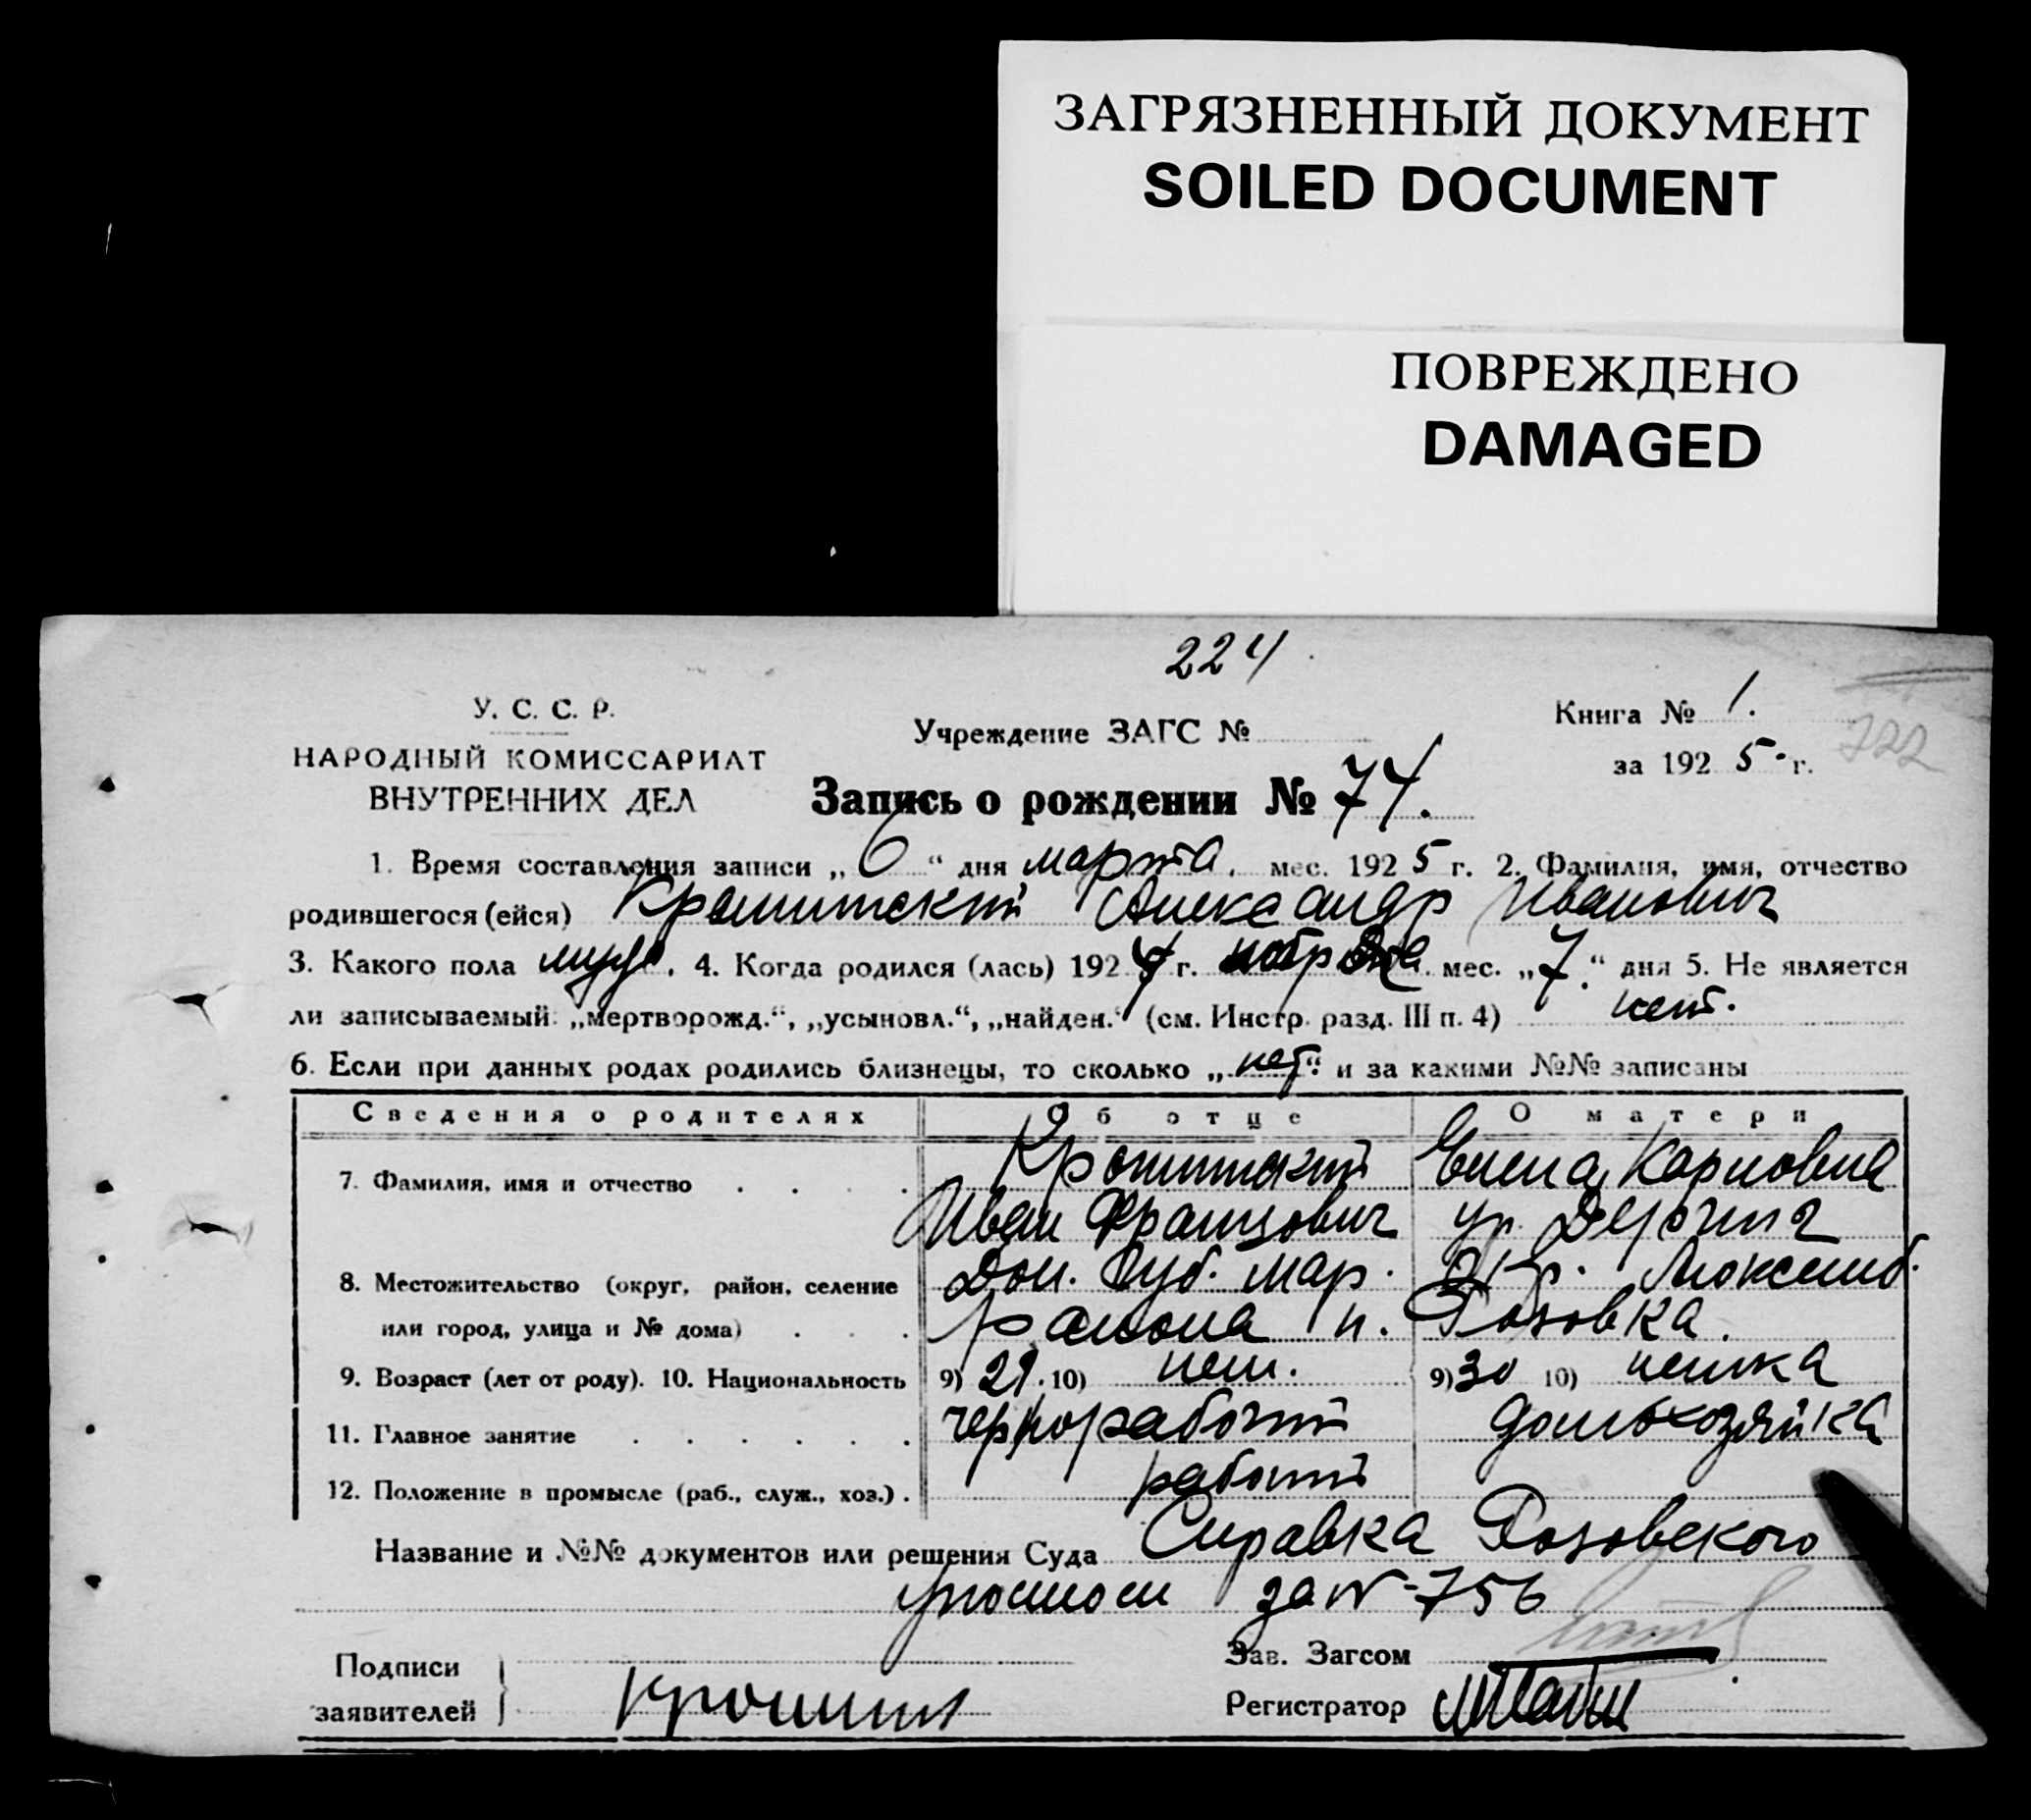 ЗАГРЯЗНЕННЫЙ ДОКУМЕНТ
SOILED DOCUMENT
ПОВРЕЖДЕНО
DAMAGED
224
У. С. С. Р.
НАРОДНЫЙ КОМИССАРИАТ
ВНУТРЕННИХ ДЕЛ
Учреждение ЗАГС №
Книга № 1.
за 1925 г.
722
Запись о рождении № 74.
1. Время составления записи „6“ дня марта, мес. 1925 г. 2. Фамилия, имя, отчество
родившегося (ейся) Александр Иванович
3. Какого пола муж. 4. Когда родился (лась) 192 г. мес. „7.“ дня 5. Не является
ли записываемый: „мертворожд.“, „усыновл.“, „найден.“ (см. Инстр. разд. III п. 4) нет.
6. Если при данных родах родились близнецы, то сколько „нет“ и за какими №№ записаны
Сведения о родителях Об отце О матери
7. Фамилия, имя и отчество Елена Карповна
Иван Францович ур.
8. Местожительство (округ, район, селение Дон. Губ. Мар. Окр. Люксемб.
или город, улица и № дома) района н. Розовка.
9. Возраст (лет от роду). 10. Национальность 9) 29. 10) нем. 9) 30 10) немка
11. Главное занятие чернорабочий домохозяйка
12. Положение в промысле (раб., служ., хоз.) . рабочий
Название и №№ документов или решения Суда Справка Розовского
за № 756
Подписи
заявителей
Зав. Загсом
Регистратор